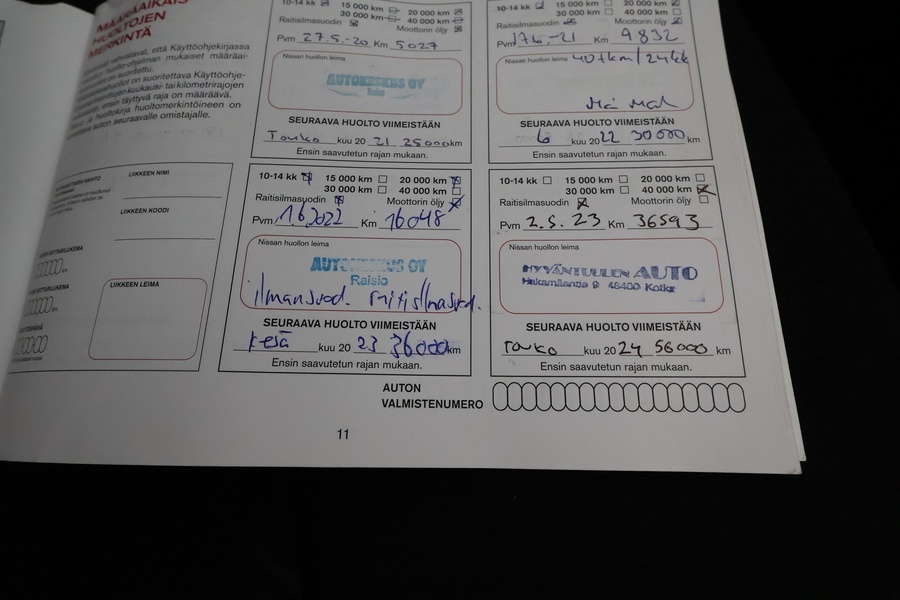 MÄÄRÄAIKAIS
HUOLTOJEN
MERKINTÄ
vahvistavat, että Käyttöohjekirjassa
huolto-ohjelman mukaiset määräai-
on suoritettu.
on suoritettava Käyttöohje-
kuukausi- tai kilometrirajojen
ensin täyttyvä raja on määräävä.
huoltokirja huoltomerkintöineen on
auton seuraavalle omistajalle.
LIIKKEEN NIMI
LIIKKEEN KOODI
LIIKKEEN LEIMA
10-14 kk 15 000 km 20 000 km
30 000 km 40 000 km
Raitisilmasuodin Moottorin öljy
Pvm 27.5.-20 Km 5027
Nissan huollon leima
AUTOKESKUS OY
Raisio
SEURAAVA HUOLTO VIIMEISTÄÄN
Touko kuu 20 21 25000 km
Ensin saavutetun rajan mukaan.
10-14 kk 15 000 km 20 000 km
30 000 km 40 000 km
Raitisilmasuodin Moottorin öljy
Pvm 17.6.-21 Km 9832
Nissan huollon leima
SEURAAVA HUOLTO VIIMEISTÄÄN
6 kuu 20 22 30000 km
Ensin saavutetun rajan mukaan.
10-14 kk 15 000 km 20 000 km
30 000 km 40 000 km
Raitisilmasuodin Moottorin öljy
Pvm 1.6.2022 Km 16048
Nissan huollon leima
AUTOKESKUS OY
Raisio
ilmansuod. raitisilmasuod.
SEURAAVA HUOLTO VIIMEISTÄÄN
Kesä kuu 20 23 36000 km
Ensin saavutetun rajan mukaan.
10-14 kk 15 000 km 20 000 km
30 000 km 40 000 km
Raitisilmasuodin Moottorin öljy
Pvm 2.5.23 Km 36593
Nissan huollon leima
HYVÄNTUULEN AUTO
Hakamäentie 9 48400 Kotka
SEURAAVA HUOLTO VIIMEISTÄÄN
Touko kuu 20 24 56000 km
Ensin saavutetun rajan mukaan.
AUTON
VALMISTENUMERO
11